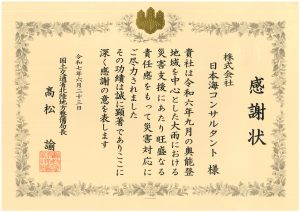 感謝状
株式会社
日本海コンサルタント 様
貴社は令和六年九月の奥能登
地域を中心とした大雨における
災害支援にあたり旺盛なる
責任感をもって災害対応に
ご尽力されました
その功績は誠に顕著でありここに
深く感謝の意を表します
令和七年六月二十三日
国土交通省北陸地方整備局長
高松 諭